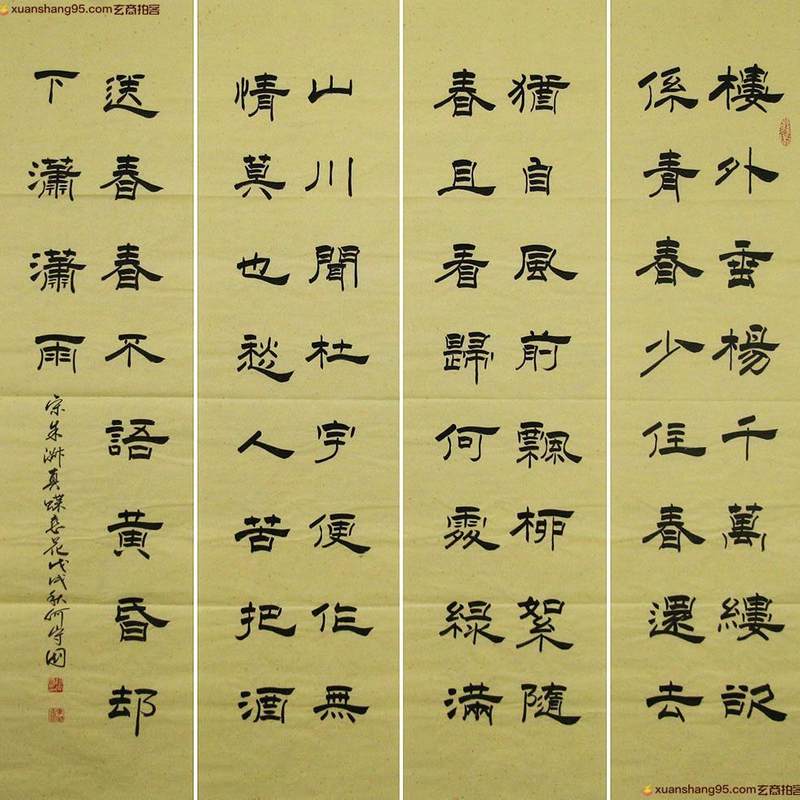 xuanshang95.com玄商拍客
樓外垂楊千萬縷欲
係青春少住春還去
猶自風前飄柳絮隨
春且看歸何處綠滿
山川聞杜宇便作無
情莫也愁人苦把酒
送春春不語黄昏却
下瀟瀟雨
宋朱淑真蝶恋花戊戌秋何守國
xuanshang95.com玄商拍客